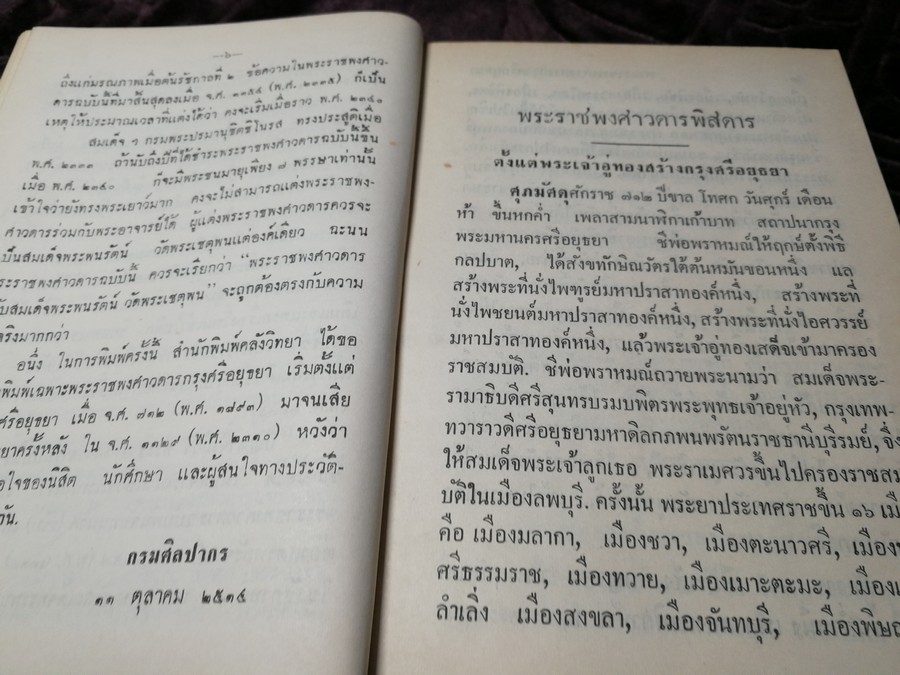 —๖—
ถึงแก่มรณภาพเมื่อต้นรัชกาลที่ ๒ ข้อความในพระราชพงศาว-
ดารฉบับนี้ที่มาสิ้นสุดลงเมื่อ จ.ศ. ๑๑๕๔ (พ.ศ. ๒๓๓๕) ก็เป็น
เหตุให้ประมาณเวลาที่แต่งได้ว่า คงจะเริ่มเมื่อราว พ.ศ. ๒๓๔๑
สมเด็จ ฯ กรมพระปรมานุชิตชิโนรส ทรงประสูติเมื่อ
พ.ศ. ๒๓๓๓ ถ้านับถึงปีที่ได้ชำระพระราชพงศาวดารฉบับนี้ขึ้น
เมื่อ พ.ศ. ๒๓๔๐ ก็จะมีพระชนมายุเพียง ๘ พรรษาเท่านั้น
เข้าใจว่ายังทรงพระเยาว์มาก คงจะไม่สามารถแต่งพระราชพง-
ศาวดารร่วมกับพระอาจารย์ได้ ผู้แต่งพระราชพงศาวดารควรจะ
เป็นสมเด็จพระพนรัตน์ วัดพระเชตุพนแต่องค์เดียว ฉะนน
พระราชพงศาวดารฉบับนี้ ควรจะเรียกว่า "พระราชพงศาวดาร
ับสมเด็จพระพนรัตน์ วัดพระเชตุพน" จะถูกต้องตรงกับความ
จริงมากกว่า
อนึ่ง ในการพิมพ์ครั้งนี้ สำนักพิมพ์คลังวิทยา ได้ขอ
พิมพ์เฉพาะพระราชพงศาวดารกรุงศรีอยุธยา เริ่มตั้งแต่
ศรีอยุธยา เมื่อ จ.ศ. ๗๑๒ (พ.ศ. ๑๘๙๓) มาจนเสีย
ยาครั้งหลัง ใน จ.ศ. ๑๑๒๙ (พ.ศ. ๒๓๑๐) หวังว่า
อใจของนิสิต นักศึกษา และผู้สนใจทางประวัติ-
กัน.
กรมศิลปากร
๑๑ ตุลาคม ๒๕๑๔
พระราชพงศาวดารพิสดาร
ตั้งแต่พระเจ้าอู่ทองสร้างกรุงศรีอยุธยา
ศุภมัสดุศักราช ๗๑๒ ปีขาล โทศก วันศุกร์ เดือน
ห้า ขึ้นหกค่ำ เพลาสามนาฬิกาเก้าบาท สถาปนากรุง
พระมหานครศรีอยุธยา ชีพ่อพราหมณ์ให้ฤกษ์ตั้งพิธี
กลปบาต, ได้สังขทักษิณวัตรใต้ต้นหมันขอนหนึ่ง แล
สร้างพระที่นั่งไพฑูรย์มหาปราสาทองค์หนึ่ง, สร้างพระที่
นั่งไพชยนต์มหาปราสาทองค์หนึ่ง, สร้างพระที่นั่งไอศวรรย์
มหาปราสาทองค์หนึ่ง, แล้วพระเจ้าอู่ทองเสด็จเข้ามาครอง
ราชสมบัติ. ชีพ่อพราหมณ์ถวายพระนามว่า สมเด็จพระ-
รามาธิบดีศรีสุนทรบรมบพิตรพระพุทธเจ้าอยู่หัว, กรุงเทพ-
ทวาราวดีศรีอยุธยามหาดิลกภพนพรัตนราชธานีบุรีรมย์, จึง
ให้สมเด็จพระเจ้าลูกเธอ พระราเมศวรขึ้นไปครองราชสม
บัติในเมืองลพบุรี. ครั้งนั้น พระยาประเทศราชขึ้น ๑๖ เมื
คือ เมืองมลากา, เมืองชวา, เมืองตะนาวศรี, เมือง
ศรีธรรมราช, เมืองทวาย, เมืองเมาะตะมะ, เมือง
ลำเลิ่ง เมืองสงขลา, เมืองจันทบุรี, เมืองพิษณ